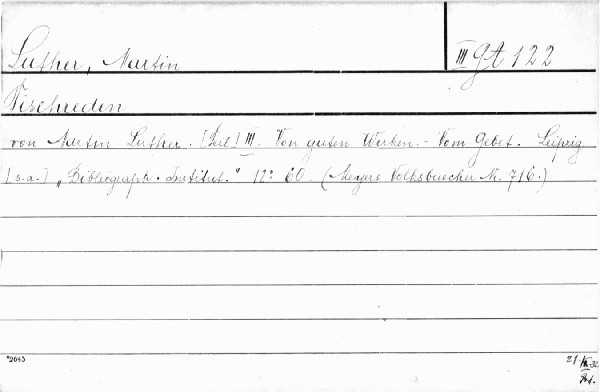 Luther, Martin
III gt 122
Tischreden
von Martin Luther. [Teil] III. Von guten Werken. - Vom Gebet. Leipzig
[s.a.] „Bibliograph. Institut." 12° 60 (Meyers Volksbuecher Nr. 716.)
*2043
21.